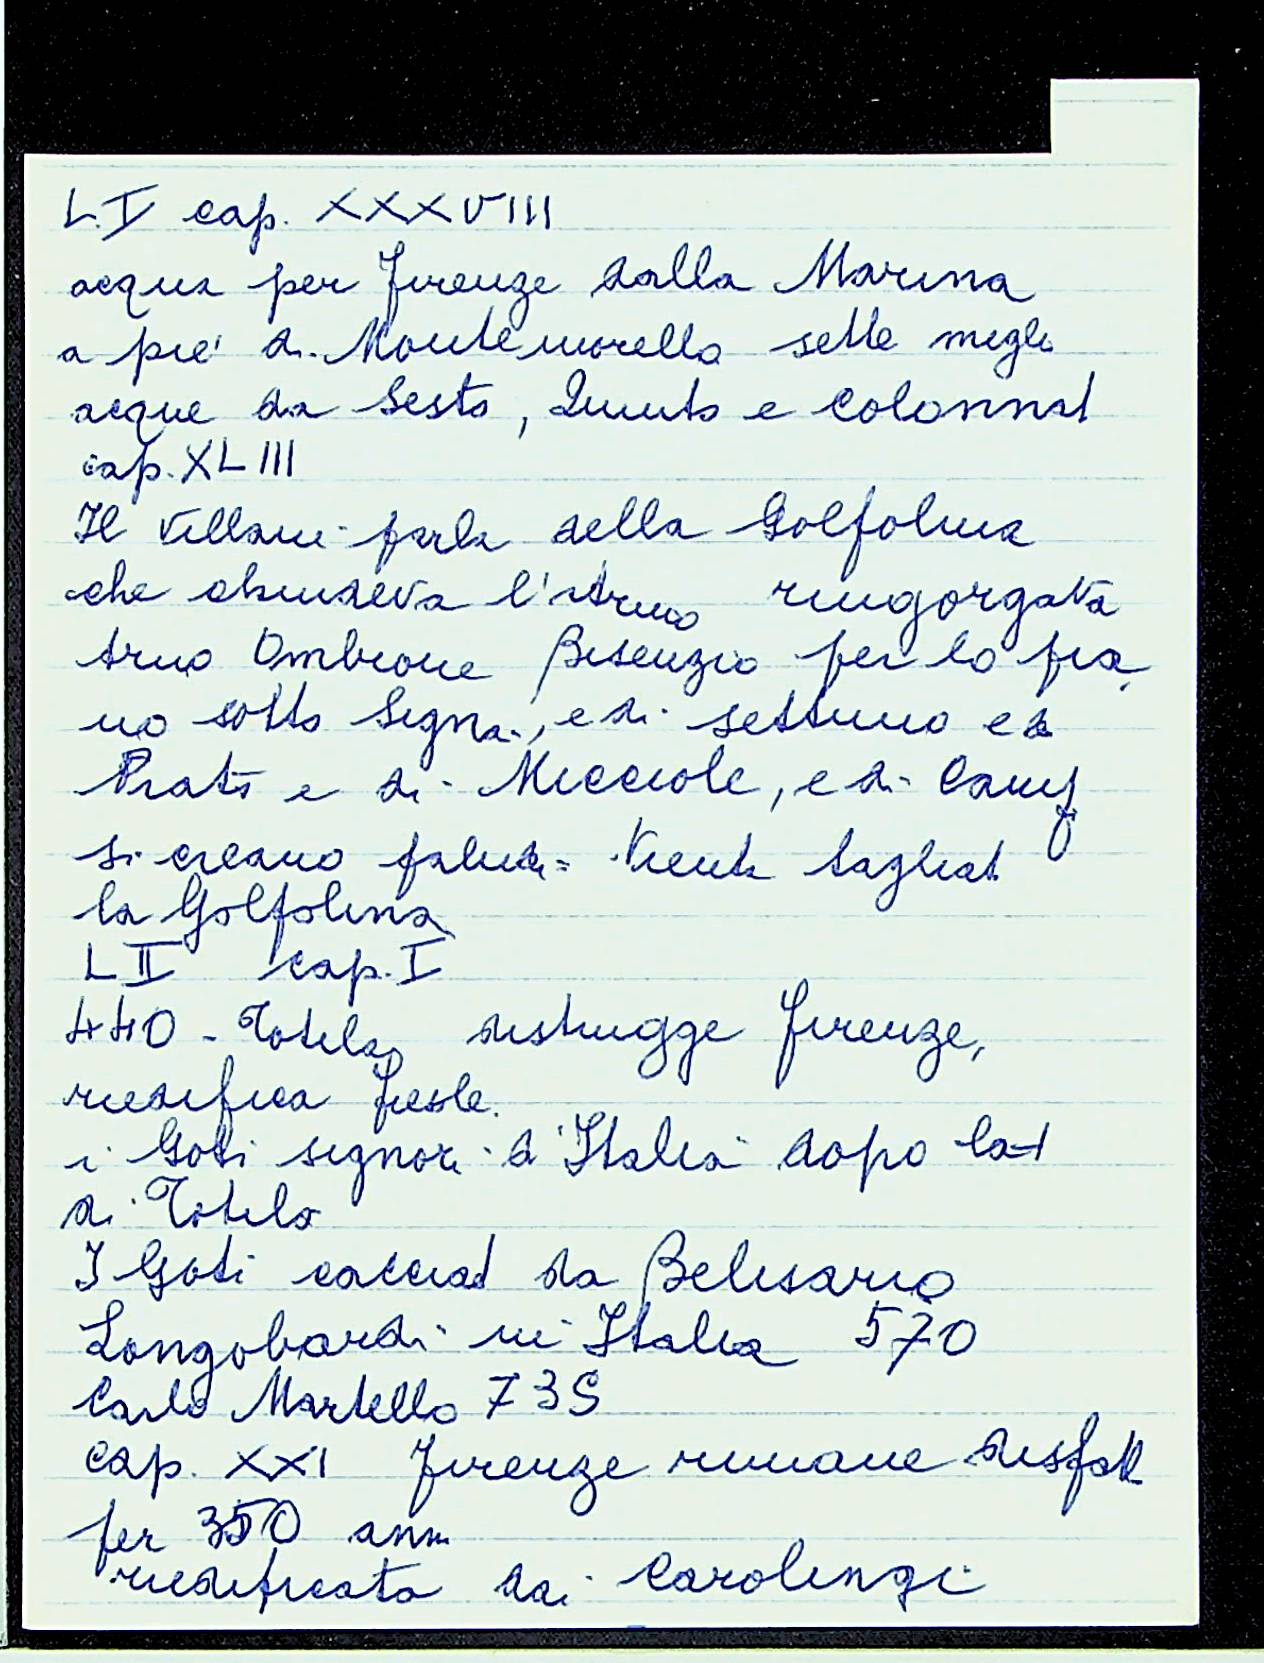 L.I cap. XXXVIII
acqua per Firenze dalla Marina
a pie' di Montemorello sette migli
acque da Sesto, Quinto e Colonnat
cap. XLIII
Il Villani parla della Golfolina
che chiudeva l'Arno ringorgava
Arno Ombrone Bisenzio per lo pia
no sotto Signa, e di Settimo e di
Prato e di Micciole, e di Camp
si creano paludi = Viene tagliat
la Golfolina
L II cap. I
440 - Totila distrugge Firenze,
riedifica Fiesole.
i Goti signori d'Italia dopo la
di Totila
I Goti cacciat da Belisario
Longobardi in Italia 570
Carlo Martello 735
cap. XXI Firenze rimane disfatt
per 350 anni
riedificata dai Carolingi